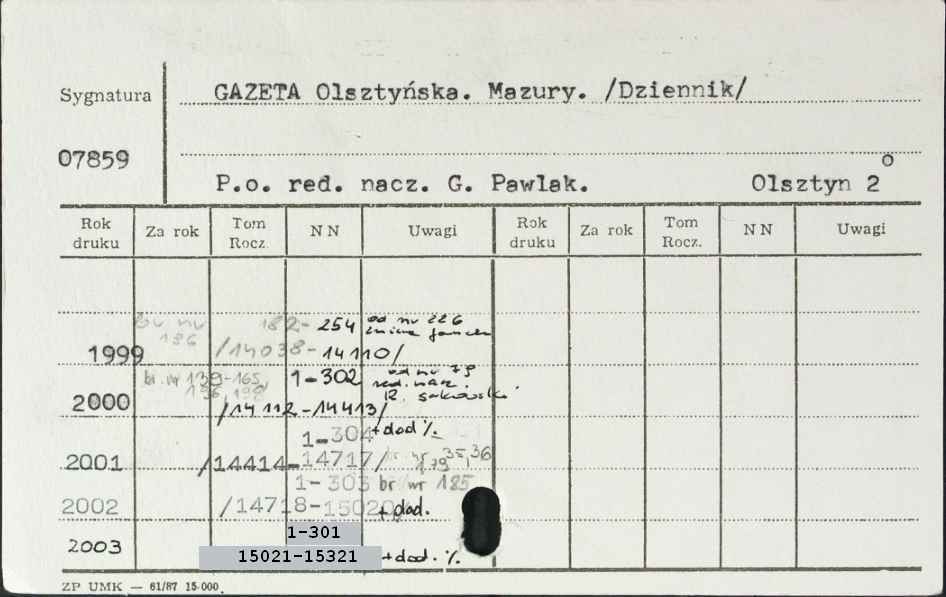 Sygnatura GAZETA Olsztyńska. Mazury. /Dziennik/
07859 o
P.o. red. nacz. G. Pawlak. Olsztyn 2
Rok druku Za rok Tom Rocz. NN Uwagi Rok druku Za rok Tom Rocz. NN Uwagi
br nr 182-254 od nr 226
196 zmiana
1999 /14038-14110/
br. nr 139-165, 1-302 od nr 79
196, 198 red. nacz.
2000 /14112-14413/ R. Sakowski
1-304 +dod %.
2001 /14414-14717/ br nr 35,36
179
1-303 br nr 185
2002 /14718-15020 +dod.
1-301
2003 15021-15321 +dod. %.
ZP UMK — 61/87 15.000.